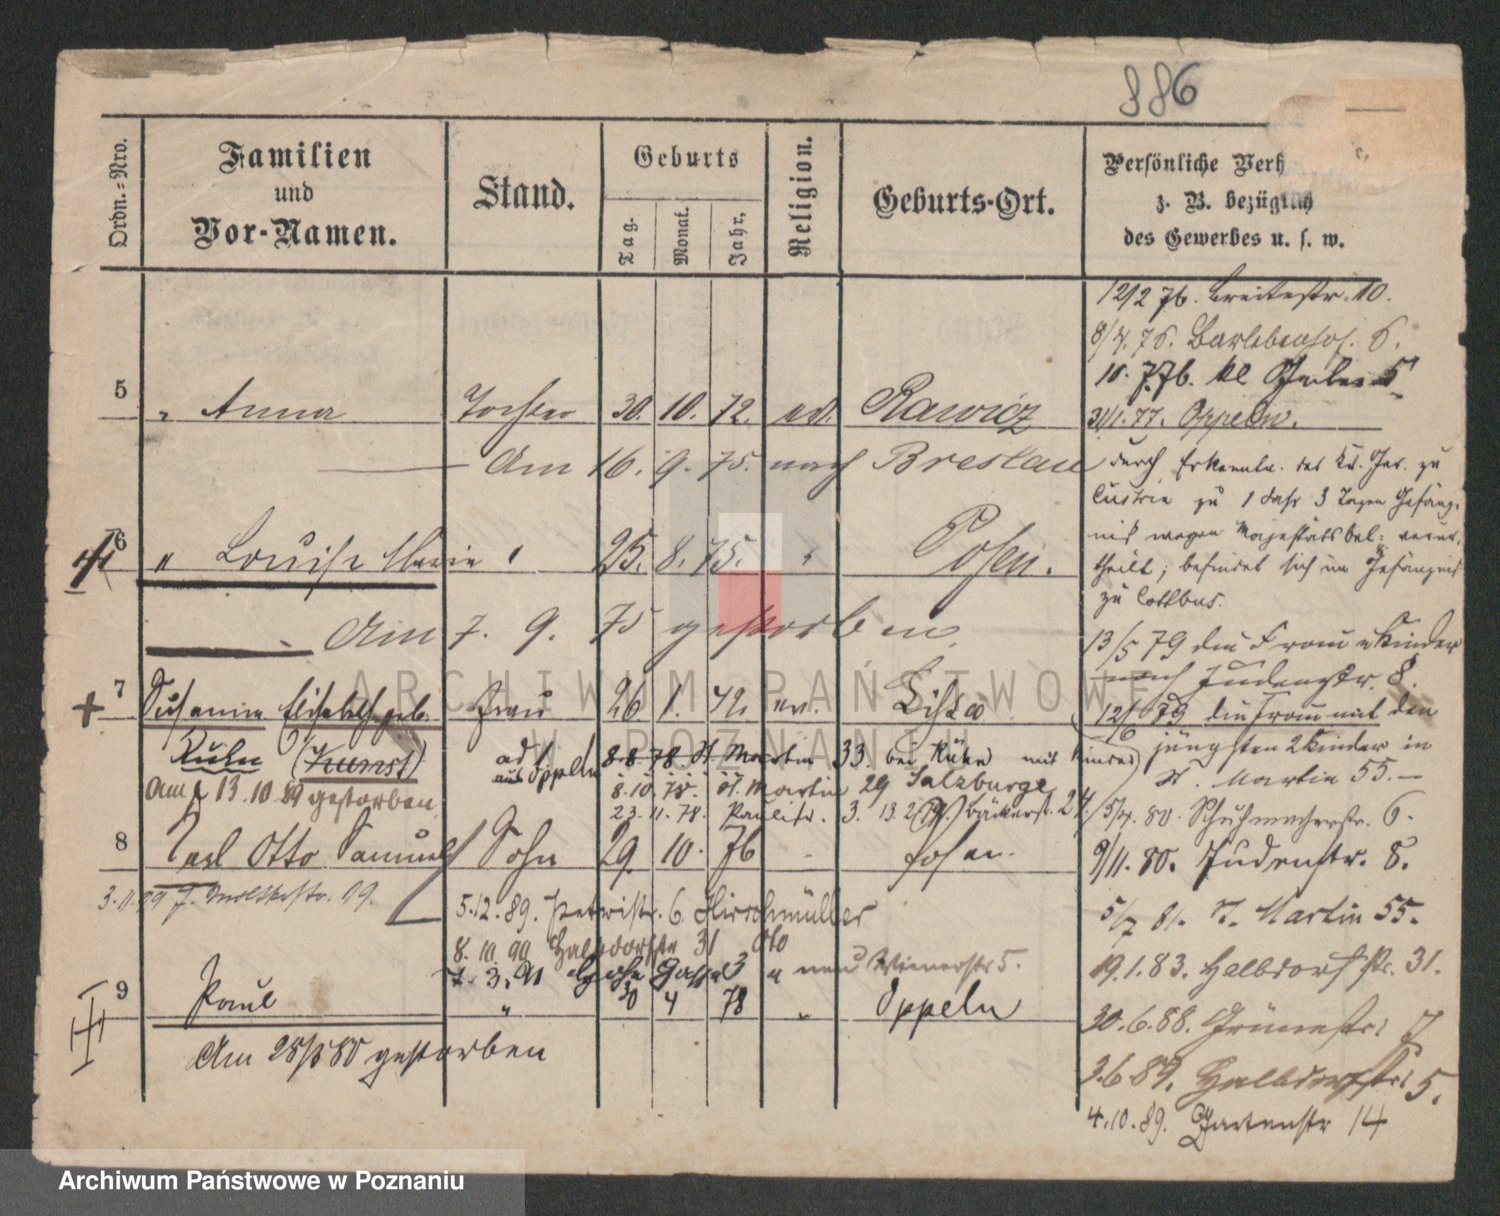 886
Ordn.-Nro.
Familien
und
Vor-Namen.
Stand.
Geburts
Tag.
Monat.
Jahr.
Religion.
Geburts-Ort.
Persönliche Verh
z. B. bezüglich
des Gewerbes u. s. w.
12/2 76. Breitestr. 10.
8/4. 76. 6.
10. 7.76. kl 5
31/1. 77. Oppeln.
5
" Anna
Tochter
30. 10. 72.
ev.
Rawicz
Am 16. 9. 75. nach Breslau
durch Erkenntn. des Kr. Ger. zu
Cüstrin zu 1 Jahr 3 Tagen Gefäng-
niß wegen Majestätsbel: verur-
theilt; befindet sich im Gefängniß
zu Cottbus.
6
" Louise Marie "
25. 8. 75. "
Posen.
Am 7. 9. 75 gestorben
13/5 79 die Frau u Kinder
nach Judenstr. 8.
7
Susanna Elisabeth geb.
Frau
26 1. 42. ev.
Lissa
Kuhn (Kunst)
Am 13. 10. 89 gestorben
12/6 79 die Frau mit den
jüngsten 2 Kinder in
St. Martin 55.
Oppeln 8.8.78 St Martin 33 bei Kuhn mit Kinder)
8.10.78. St. Martin 29 Salzburge
23.11.78. Paulistr. 3. 13.2.79. Bäckerstr. 24.
5/4. 80. Schuhmacherstr. 6.
8
Karl Otto Samuel
Sohn
29. 10. 76
-
Posen.
9/11. 80. Judenstr. 8.
5.12.89. Petristr. 6. Hirschmüller
5/7 81. St. Martin 55.
8.10.90 Halbdorfstr 31
19.1.83. Halbdorfstr. 31.
Wienerstr 5.
9
Paul
"
30 4 78
"
Oppeln
20.6.88. Grünestr:
Am 28/5 80 gestorben
3.6.89. Halbdorfstr: 5.
4.10.89. Gartenstr 14
ARCHIWUM PAŃSTWOWE
W POZNANIU
Archiwum Państwowe w Poznaniu